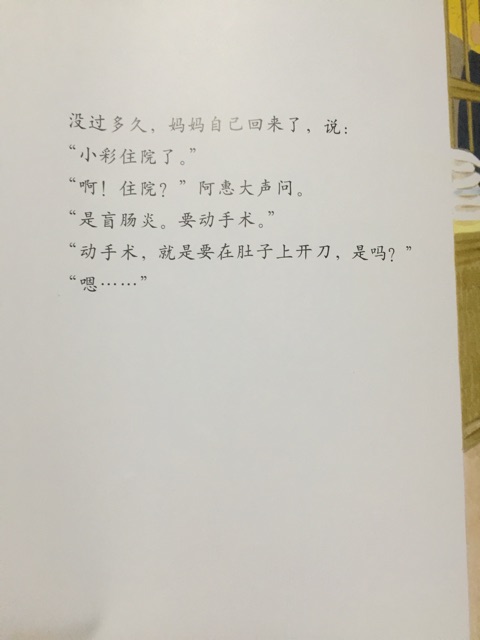 没过多久，妈妈自己回来了，说：
“小彩住院了。”
“啊！住院？”阿惠大声问。
“是盲肠炎。要动手术。”
“动手术，就是要在肚子上开刀，是吗？”
“嗯……”